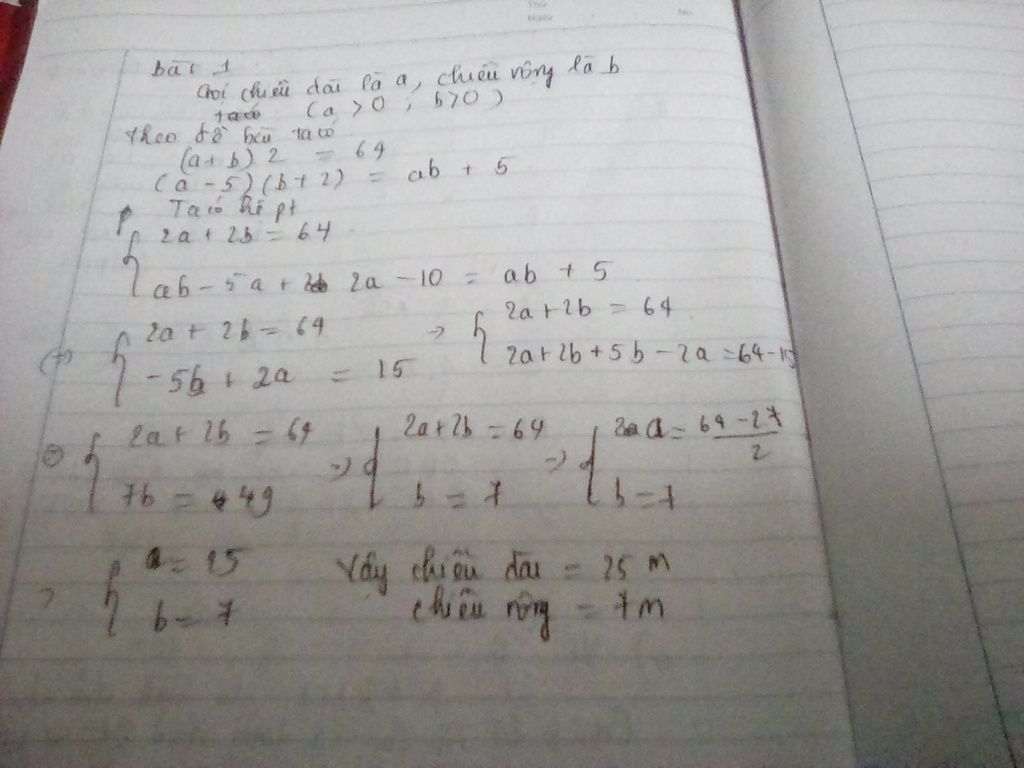 Thứ
Ngày No.
bài 1
Gọi chiều dài là a, chiều rộng là b
(a > 0 ; b > 0)
theo đề bài ta có
(a + b) 2 = 64
(a - 5)(b + 2) = ab + 5
Ta có hệ pt
{ 2a + 2b = 64
ab - 5a + 2a - 10 = ab + 5
{ 2a + 2b = 64 => { 2a + 2b = 64
-5b + 2a = 15 2a + 2b + 5b - 2a = 64 - 15
{ 2a + 2b = 64 => { 2a + 2b = 64 => { a = 64 - 2 7 / 2
7b = 49 b = 7 b = 7
{ a = 25 Vậy chiều dài = 25 m
b = 7 chiều rộng = 7 m